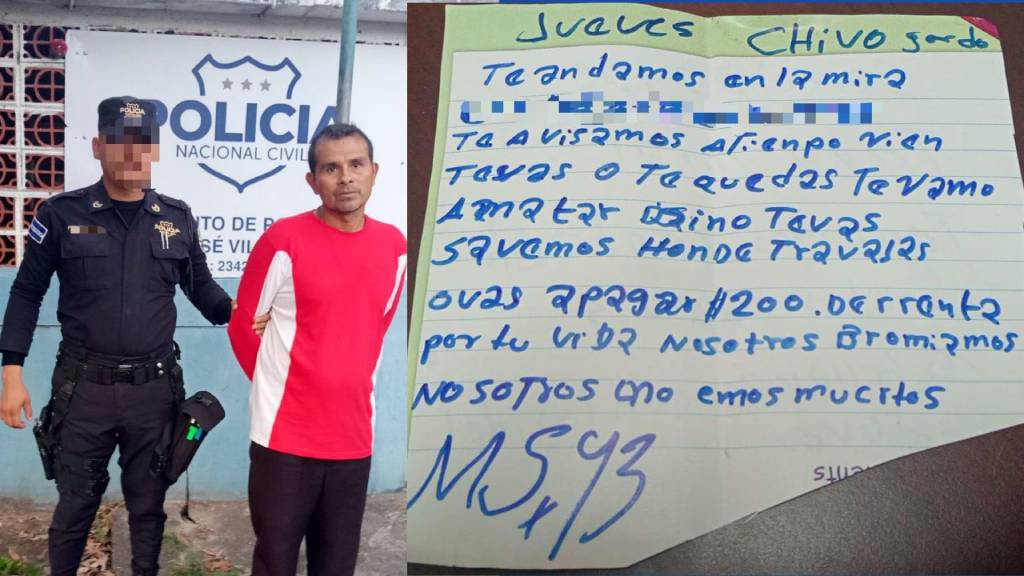 POLICIA
NACIONAL CIVIL
NTO DE P
SÉ VIL
: 2342
POLICIA
POLICIA
Jueves CHivo gordo
Te andamos en la mira
Te Avisamos Atienpo vien
Tevas o Te quedas Te vamo
A matar sino Tevas
Savemos HonDe Travajas
ovas a pagar $200. De rrenta
por tu viDa Nosotros Bromiamos
NOSOTROS no emos muertos
MS x 93